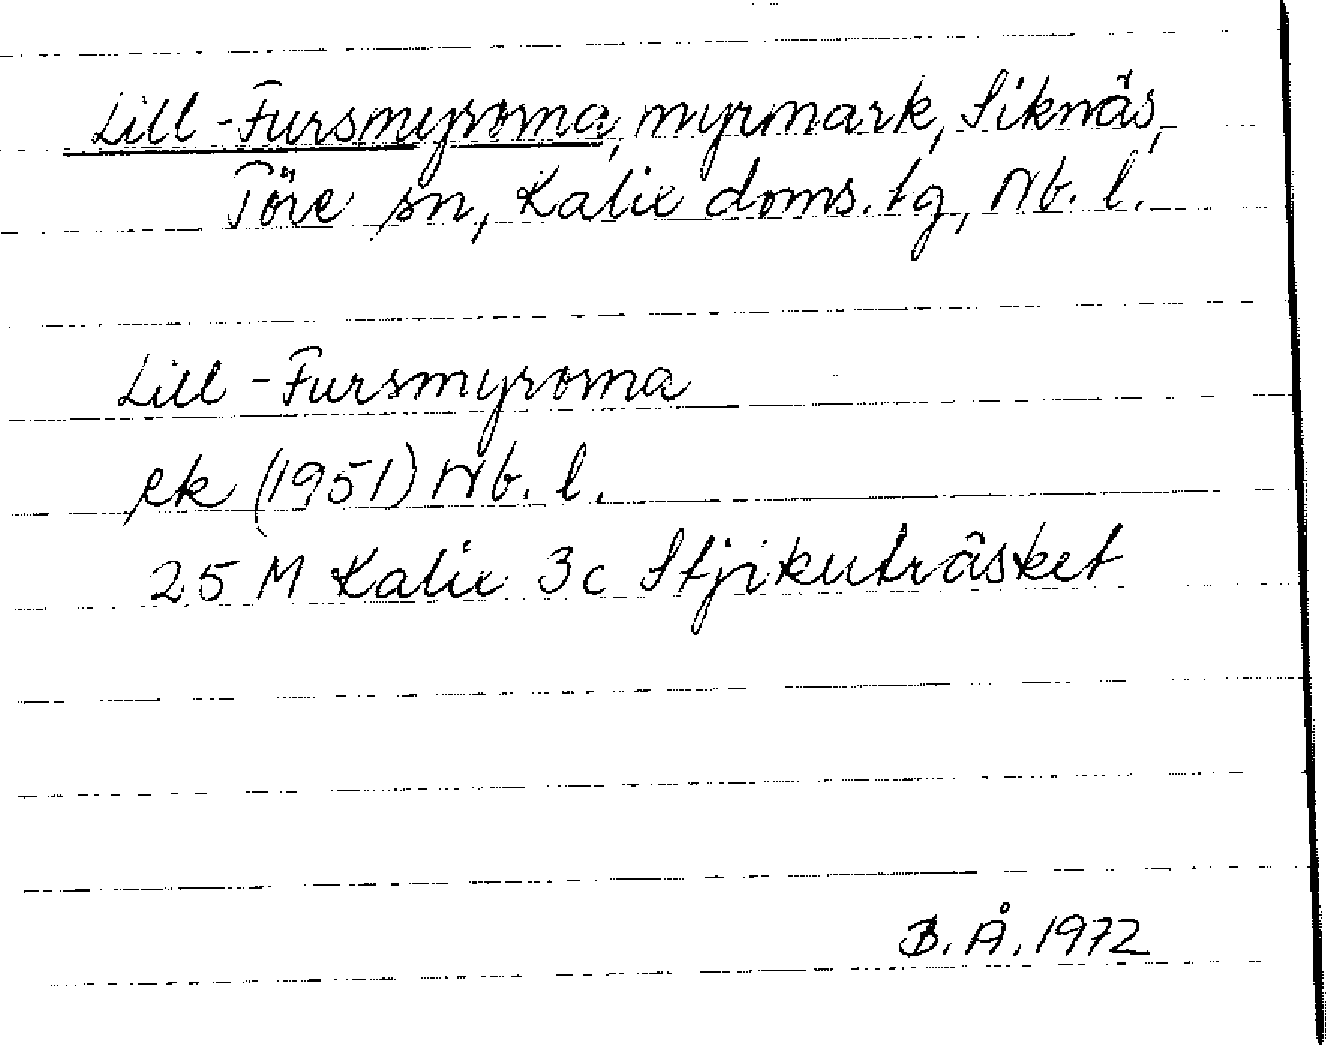 Lill-Fursmyrorna, myrmark, Siknäs,
Töre sn, Kalix doms. tg, Nb. l.
Lill-Fursmyrorna
ek (1951) Nb. l.
25 M Kalix 3c Stjikuträsket
B. Å. 1972